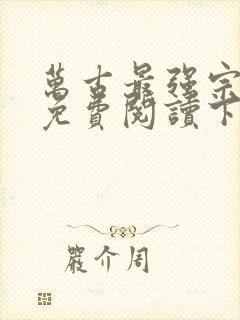 萬古最强宗
免費閱讀下
嚴介周